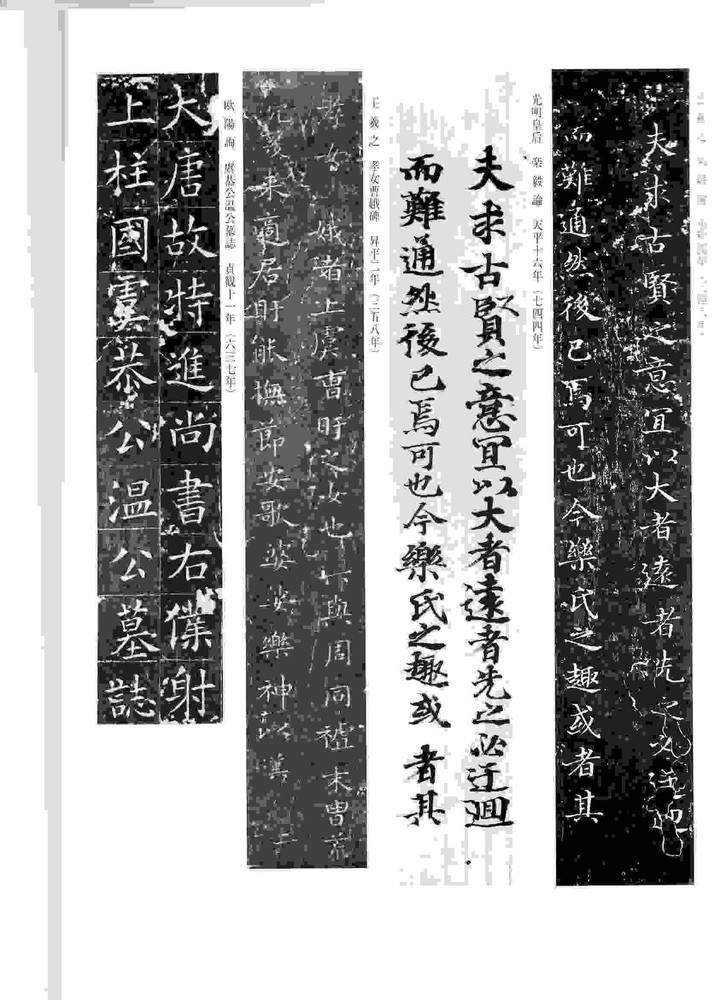 夫求古賢之意宜以大者遠者先之必迂迴
而難通然後已焉可也今樂氏之趣或者其
光明皇后　楽毅論　天平十六年（七四四年）
夫求古賢之意宜以大者遠者先之必迂迴
而難通然後已焉可也今樂氏之趣或者其
王羲之　孝女曹娥碑　昇平二年（三五八年）
孝女 娥者上虞曹盱之女也 與周同 末冑荒
來適居盱能撫節安歌婆娑樂神以
欧陽詢　虞恭公温公墓誌　貞観十一年（六三七年）
大唐故特進尚書右僕射
上柱國虞恭公温公墓誌